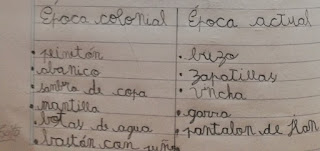 Época colonial
• peinetón
• abanico
• sombro de copa
• mantilla
• botas de agua
• bastón con puño
Época actual
• buzo
• zapatillas
• vincha
• gorra
• pantalon de